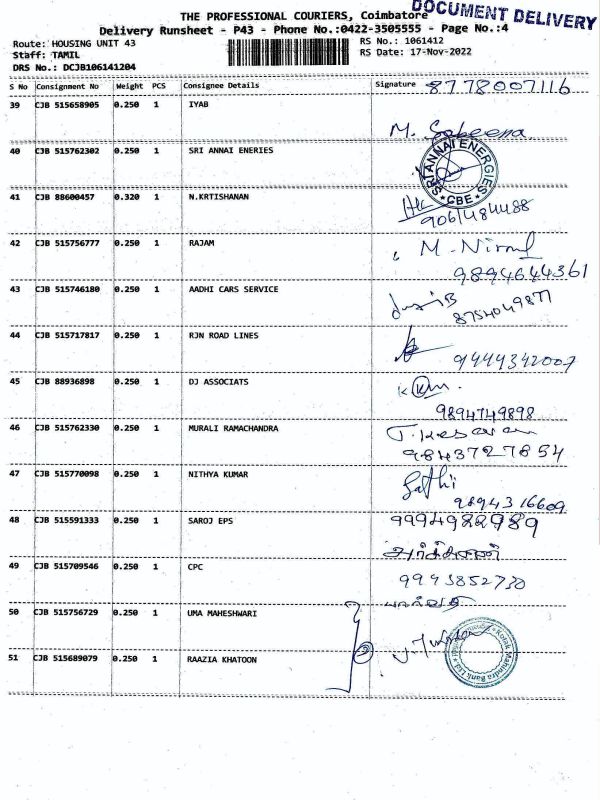 DOCUMENT DELIVERY
THE PROFESSIONAL COURIERS, Coimbatore
Delivery Runsheet - P43 - Phone No.:0422-3505555 - Page No.:4
Route: HOUSING UNIT 43 RS No.: 1061412
Staff: TAMIL RS Date: 17-Nov-2022
DRS No.: DCJB106141204
S No Consignment No Weight PCS Consignee Details Signature 8778007116
39 CJB 515658905 0.250 1 IYAB
M. Sabeena
40 CJB 515762302 0.250 1 SRI ANNAI ENERIES
SRI ANNAI ENERGIES CBE
41 CJB 88600457 0.320 1 N.KRTISHANAN
9061484488
42 CJB 515756777 0.250 1 RAJAM
M. Nirmal
9894644361
43 CJB 515746180 0.250 1 AADHI CARS SERVICE
8754049877
44 CJB 515717817 0.250 1 RJN ROAD LINES
9444342007
45 CJB 88936898 0.250 1 DJ ASSOCIATS
9894749898
46 CJB 515762330 0.250 1 MURALI RAMACHANDRA
T. Kesavan
9843727854
47 CJB 515770098 0.250 1 NITHYA KUMAR
Sathi
9894316609
48 CJB 515591333 0.250 1 SAROJ EPS
9994982989
49 CJB 515709546 0.250 1 CPC
9943852730
50 CJB 515756729 0.250 1 UMA MAHESHWARI
2
Kotak Mahindra Bank Ltd
51 CJB 515689079 0.250 1 RAAZIA KHATOON